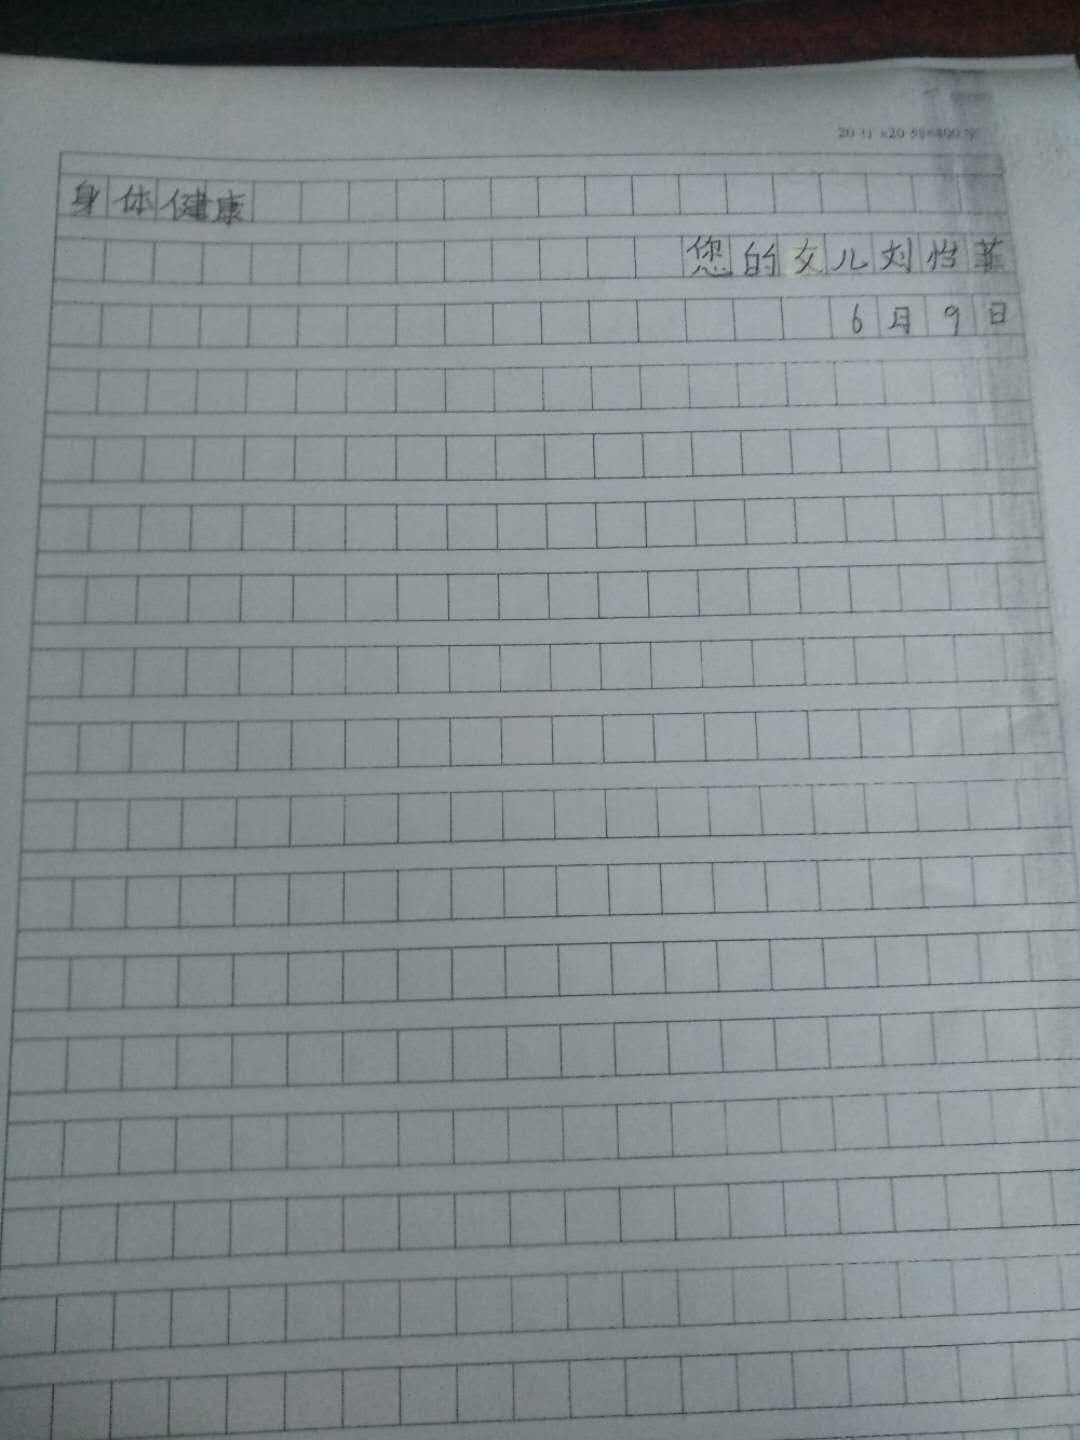 20行×20列=400字
身体健康
您的女儿刘怡菲
6月9日